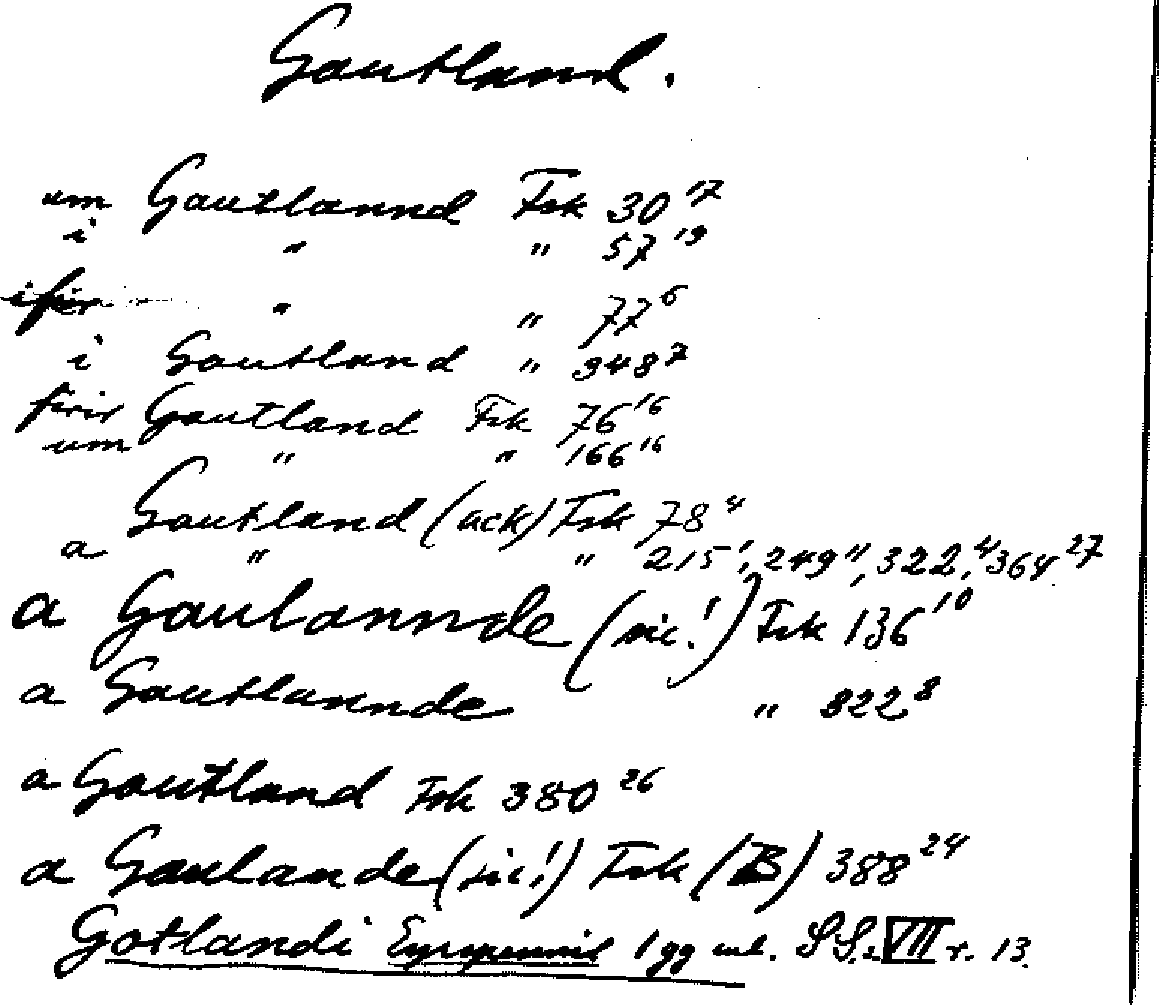 Gautland.
um Gautlannd Fsk 30¹⁷
i " " 57¹⁹
ifir " " 77⁶
i Gautland " 348⁷
firir Gautland Fsk 76¹⁶
um " " 166¹⁶
Gautland (ack) Fsk 78⁴
a " " 215¹, 249¹¹, 322,⁴ 364²⁷
a Gaulannde (sic!) Fsk 136¹⁰
a Gautlannde " 322⁸
a Gautland Fsk 380²⁶
a Gaulande (sic!) Fsk (B) 388²⁴
Gotlandi 1 gg SS. VIII s. 13.